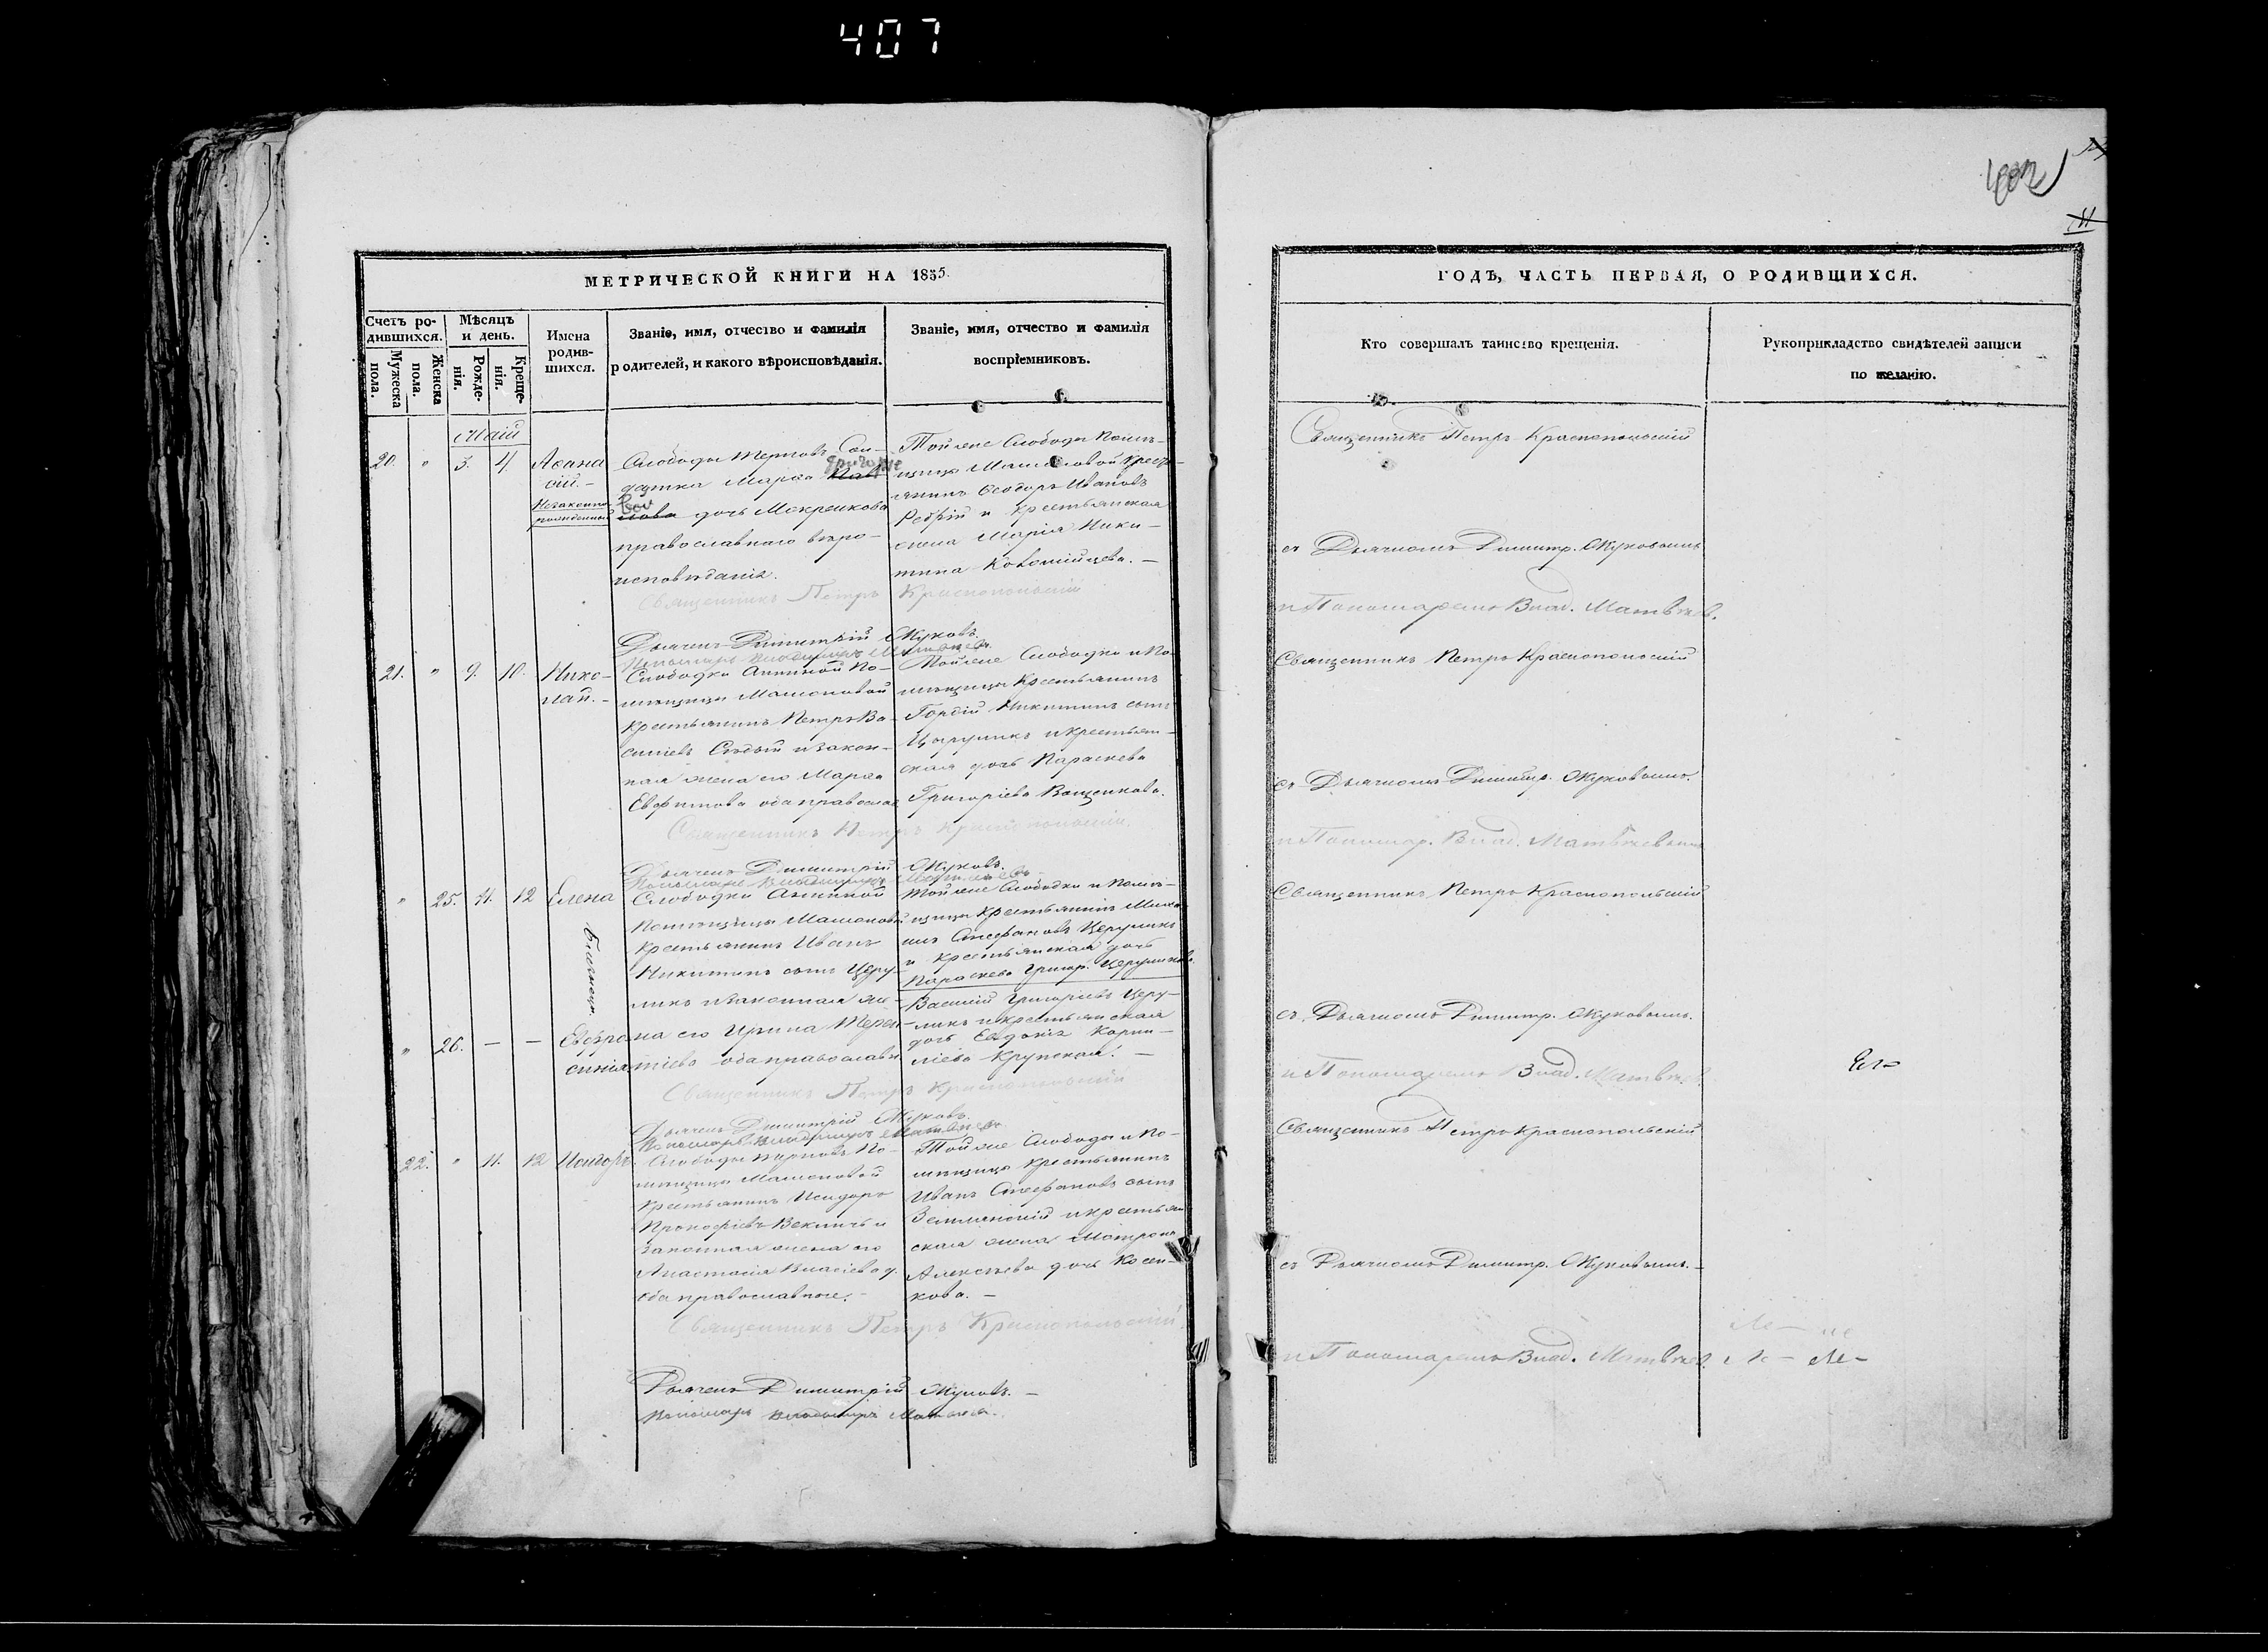 407
МЕТРИЧЕСКОЙ КНИГИ НА 1835.
Счетъ родившихся.
Мужеска пола.
Женска пола.
Мѣсяцъ и день.
Рожденія.
Крещенія.
Имена родившихся.
Званіе, имя, отчество и фамилія
родителей, и какого вѣроисповѣданія.
Званіе, имя, отчество и фамилія
воспріемниковъ.
Маій
20. " 3. 4. Аѳана
сій.-
Незаконно
рожденный
Слободы Терновъ Сол-
датка Марѳа
дочь Мокренкова
православнаго вѣро-
исповѣданія.
Тойже Слободы Помѣ-
щицы
Ѳеодоръ Ивановъ
и крестьянская
жена Марія Ники-
тина Коломійцева.-
Священникъ Петръ Краснопольскій
Дьячекъ Димитрій Жуковъ.
Пономарь Владимиръ Матвѣевъ
21. " 9. 10. Нико-
лай.-
Слободки Анниной По-
мѣщицы
Крестьянинъ Петръ Ва-
силіевъ Сѣдый и закон-
ная жена его Марѳа
Евфимова оба православ
Тойже Слободки и По-
мѣщицы Крестьянинъ
Гордій Никитинъ сынъ
Цыруликъ и крестьян-
ская дочь Параскева
Григоріева Ващенкова.
Священникъ Петръ Краснопольскій.
Дьячекъ Димитрій Жуковъ.
Пономарь Владимиръ Матвѣевъ
" 25. 11. 12 Елена
Близнецы.
" 26. - - Евфро
синія
Слободки Анниной
Помѣщицы
Крестьянинъ Иванъ
Никитинъ сынъ Церу-
ликъ и законная же-
на его Ирина Терен-
тіева оба православн.
Тойже Слободки и Помѣ-
щицы Крестьянинъ Миха
илъ Стефановъ Церуликъ
и крестьянская дочь
Параскева Григор. Церуликова.
Василій Григоріевъ Церу-
ликъ и крестьянская
дочь Евдокія Корни-
ліева Крупская.-
Священникъ Петръ Краснопольскій
Дьячекъ Димитрій Жуковъ.
Пономарь Владимиръ Матвѣевъ
22. " 11. 12 Исидоръ
Слободы Терновъ По-
мѣщицы
Крестьянинъ Исидоръ
Прокофіевъ Векличъ и
законная жена его
Анастасія Власіева д.
оба православные.-
Тойже Слободы и По-
мѣщицы Крестьянинъ
Иванъ Стефановъ сынъ
и крестьян
ская жена Матрона
Алексѣева дочь Косен-
кова.-
Священникъ Петръ Краснопольскій.
Дьячекъ Димитрій Жуковъ.-
Пономарь Владимиръ Матвѣевъ.
ГОДЪ, ЧАСТЬ ПЕРВАЯ, О РОДИВШИХСЯ.
Кто совершалъ таинство крещенія.
Рукоприкладство свидѣтелей записи
по желанію.
Священникъ Петръ Краснопольскій
съ Дьячкомъ Димитр. Жуковымъ
и Пономаремъ Влад. Матвѣев.
Священникъ Петръ Краснопольскій
съ Дьячкомъ Димитр. Жуковымъ.
и Пономар. Влад. Матвѣевымъ
Священникъ Петръ Краснопольскій
съ Дьячкомъ Димитр. Жуковымъ.
и Пономаремъ Влад. Матвѣев.
Священникъ Петръ Краснопольскій
съ Дьячкомъ Димитр. Жуковымъ.-
и Пономаремъ Влад. Матвѣев.